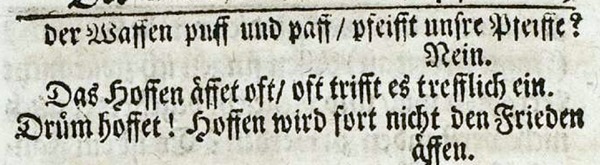 der Waffen puff und paff/ pfeifft unsre Pfeiffe?
Nein.
Das Hoffen äffet oft/ oft trifft es trefflich ein.
Drüm hoffet! Hoffen wird fort nicht den Frieden
äffen.